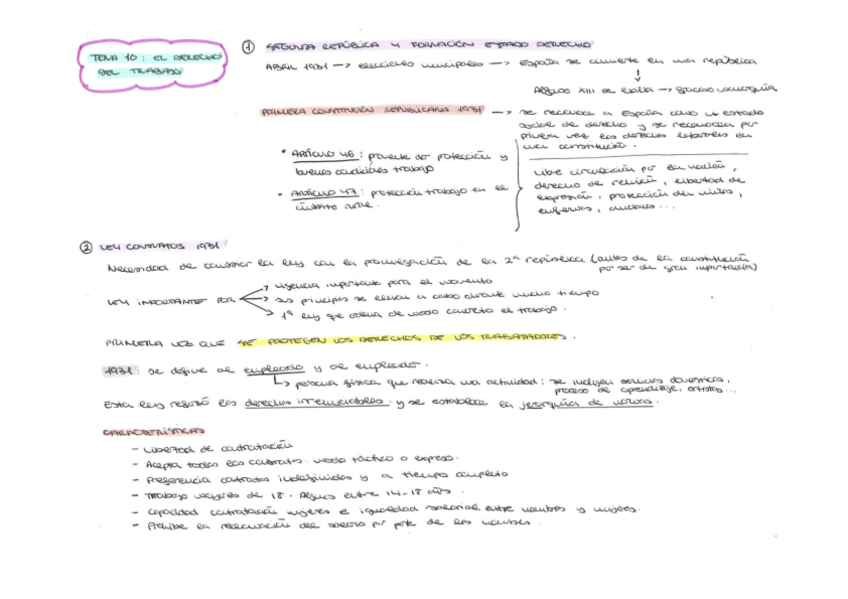 TEMA 10: EL DERECHO
DEL TRABAJO
① SEGUNDA REPÚBLICA Y FORMACIÓN ESTADO DERECHO
ABRIL 1931 → elecciones municipales → España se convierte en una república
↓
Alfonso XIII se exilia → fracaso monarquía
PRIMERA CONSTITUCIÓN REPUBLICANA 1931 → se reconoce a España como un estado
social de derecho y se reconocen por
primera vez los derechos laborales en
una constitución.
• ARTÍCULO 46: protección y
buenas condiciones trabajo
• ARTÍCULO 47: protección trabajo en el
rural.
Libre circulación por la nación,
derecho de reunión, libertad de
expresión, protección del niños,
enfermos, ancianos...
② LEY CONTRATOS 1931
Necesidad de construir la ley con la promulgación de la 2ª república (antes de la constitución
por ser de gran importancia)
LEY IMPORTANTE POR → urgencia importante para el momento
→ sus principios se llevan a cabo durante mucho tiempo
→ 1ª ley que ordena de modo concreto el trabajo.
PRIMERA VEZ QUE SE PROTEGEN LOS DERECHOS DE LOS TRABAJADORES.
1931: se define al empleado y al empleador.
↳ persona física que realiza una actividad: se incluyen servicios domésticos,
proceso de aprendizaje, artistas...
Esta ley reguló los derechos irrenunciables y se establece la jerarquía de normas.
CARACTERÍSTICAS
- Libertad de contratación
- Acepta todos los contratos: modo táctico o expreso.
- Preferencia contratos indefinidos y a tiempo completo
- Trabajo mayores de 18. Algunos entre 14-18 años.
- Capacidad contratación mujeres e igualdad salarial entre hombres y mujeres.
- Prohíbe la del salario por parte de los hombres.